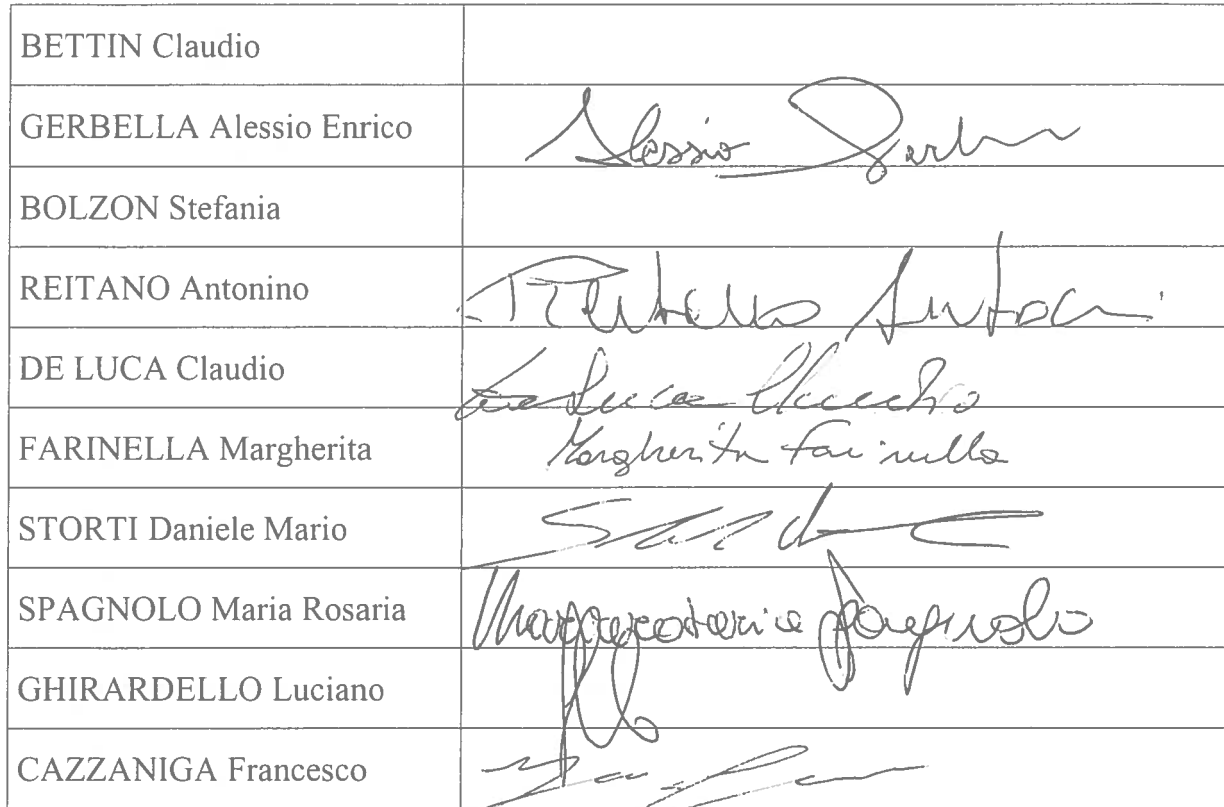 BETTIN Claudio
GERBELLA Alessio Enrico Alessio
BOLZON Stefania
REITANO Antonino
DE LUCA Claudio De Luca Claudio
FARINELLA Margherita Margherita Farinella
STORTI Daniele Mario
SPAGNOLO Maria Rosaria Spagnolo
GHIRARDELLO Luciano
CAZZANIGA Francesco